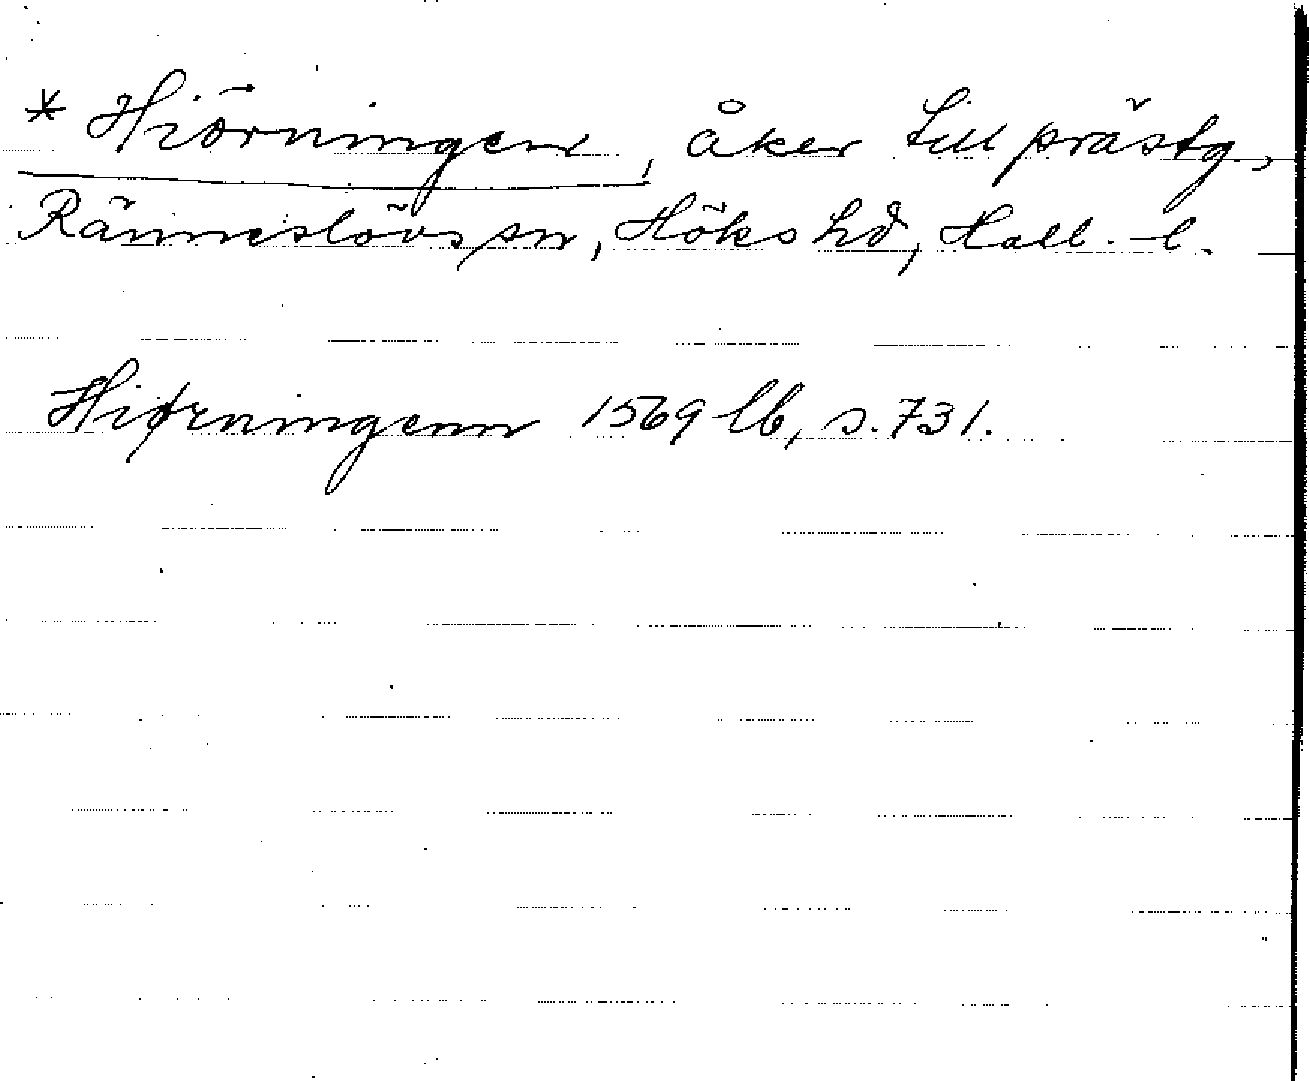 * Hiörningen, åker till prästg.,
Ränneslövs sn, Höks hd, Hall. l.
Hiørningenn 1569 lb, s. 731.